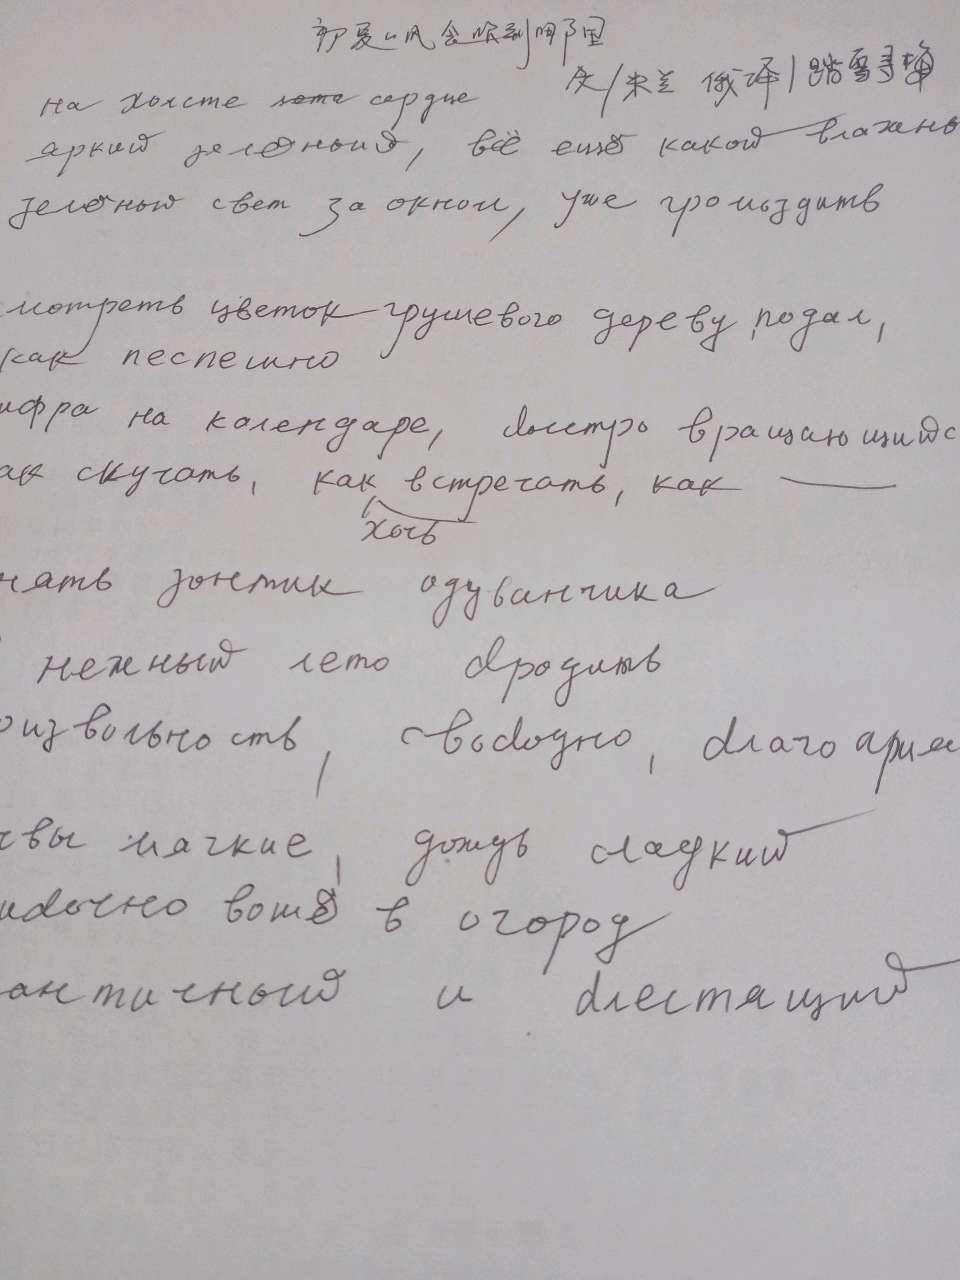 夏 风会
文/朱兰 俄译/踏雪寻梅
на холсте лете сердце
яркий зелёный, всё ещё какой влажны
зелёный свет за окном, уже громоздить
мотреть цветок грушевого дереву подал,
как песпешно
ифра на календаре, быстро вращающийс
ак скучать, как встречать, как
хоть
нять зонтик одуванчика
нежный лето бродить
оизвольность, свободно, благо
чвы мягкие, дождь сладкий
ибочно вошё в огород
античный и блестящий